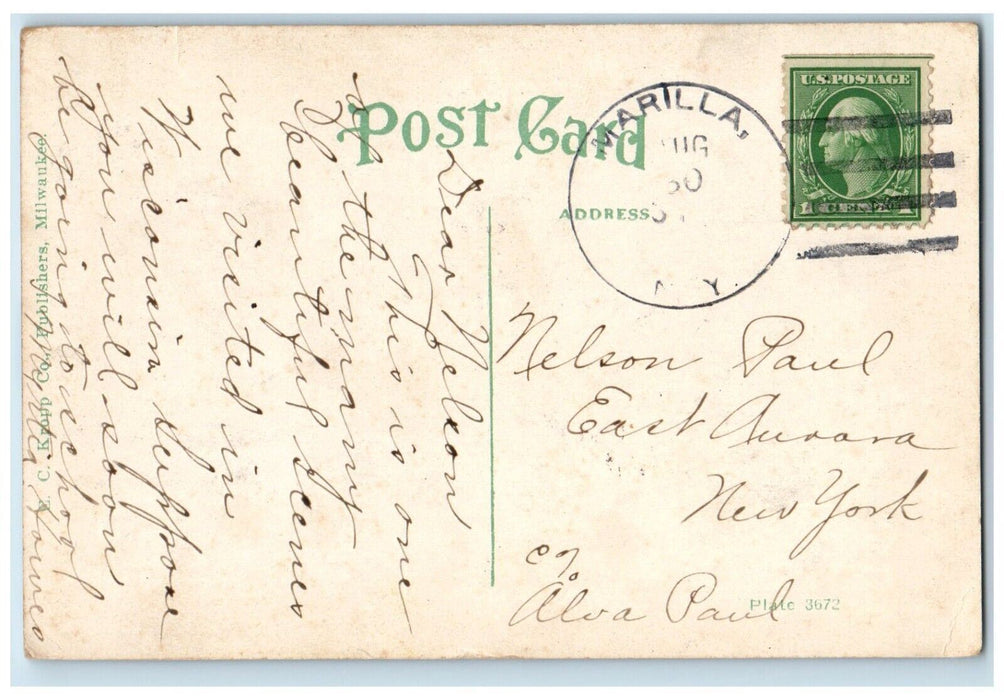 Post Card
ADDRESS
MARILLA,
AUG
30
N. Y.
U.S. POSTAGE
1 CENT 1
Nelson Paul
East Aurora
New York
c/o
Alva Paul
Plate 3672
Dear Nelson
This is one
of the many
beautiful scenes
we visited in
Wisconsin suppose
you will soon
be going to school
E. C. Kropp Co., Publishers, Milwaukee.